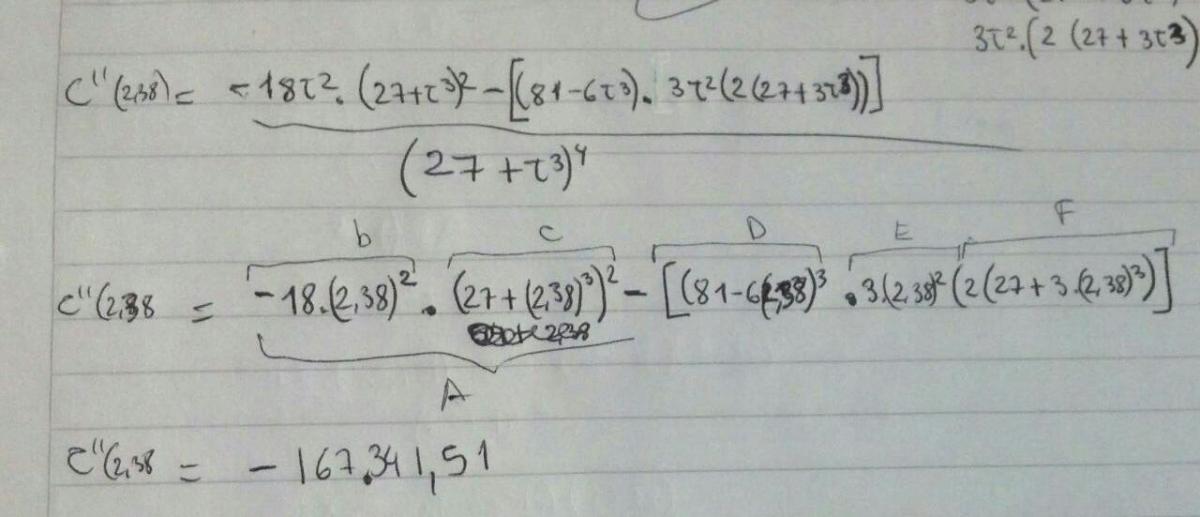 3τ².(2 (27 + 3τ³)
C''(2,38) = -18τ². (27+τ³)² - [(81-6τ³). 3τ²(2(27+3τ³))]
(27 + τ³)⁴
b C D E F
C''(2,38 = -18.(2,38)² . (27+(2,38)³)² - [(81-6(2,38)³ . 3.(2,38)² (2(27+3.(2,38)³)]
A
C''(2,38 = - 167.341,51